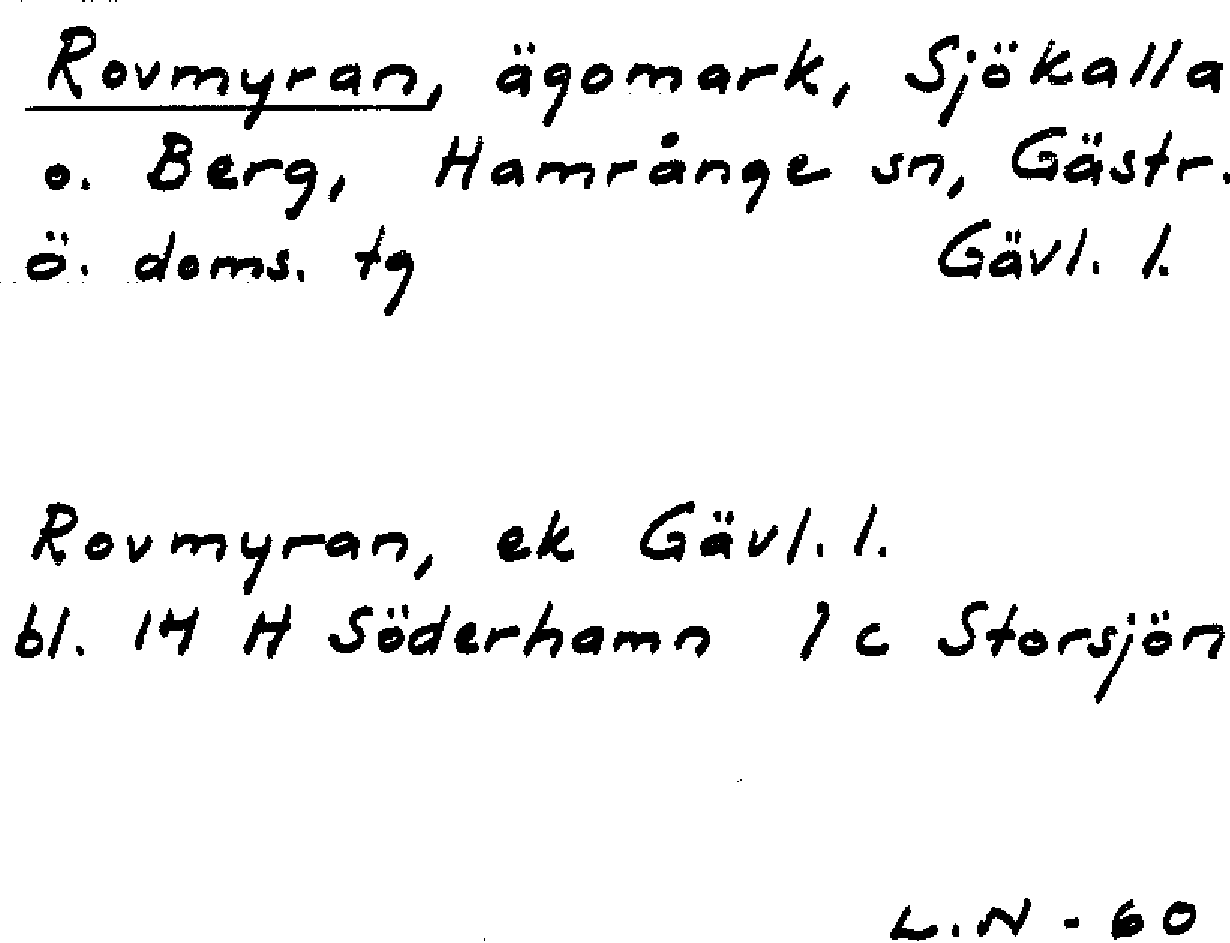 Rovmyran, ägomark, Sjökalla
o. Berg, Hamrånge sn, Gästr.
ö. doms. tg Gävl. l.
Rovmyran, ek Gävl. l.
bl. 14 H Söderhamn 1 c Storsjön
L.N - 60